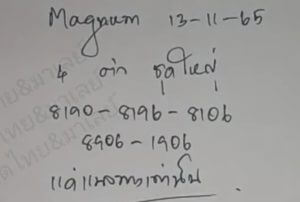 Magnum 13-11-65
4 ตัว ชุดใหญ่
8190 - 8196 - 8106
8906 - 1906
แค่แนวทางเท่านั้น